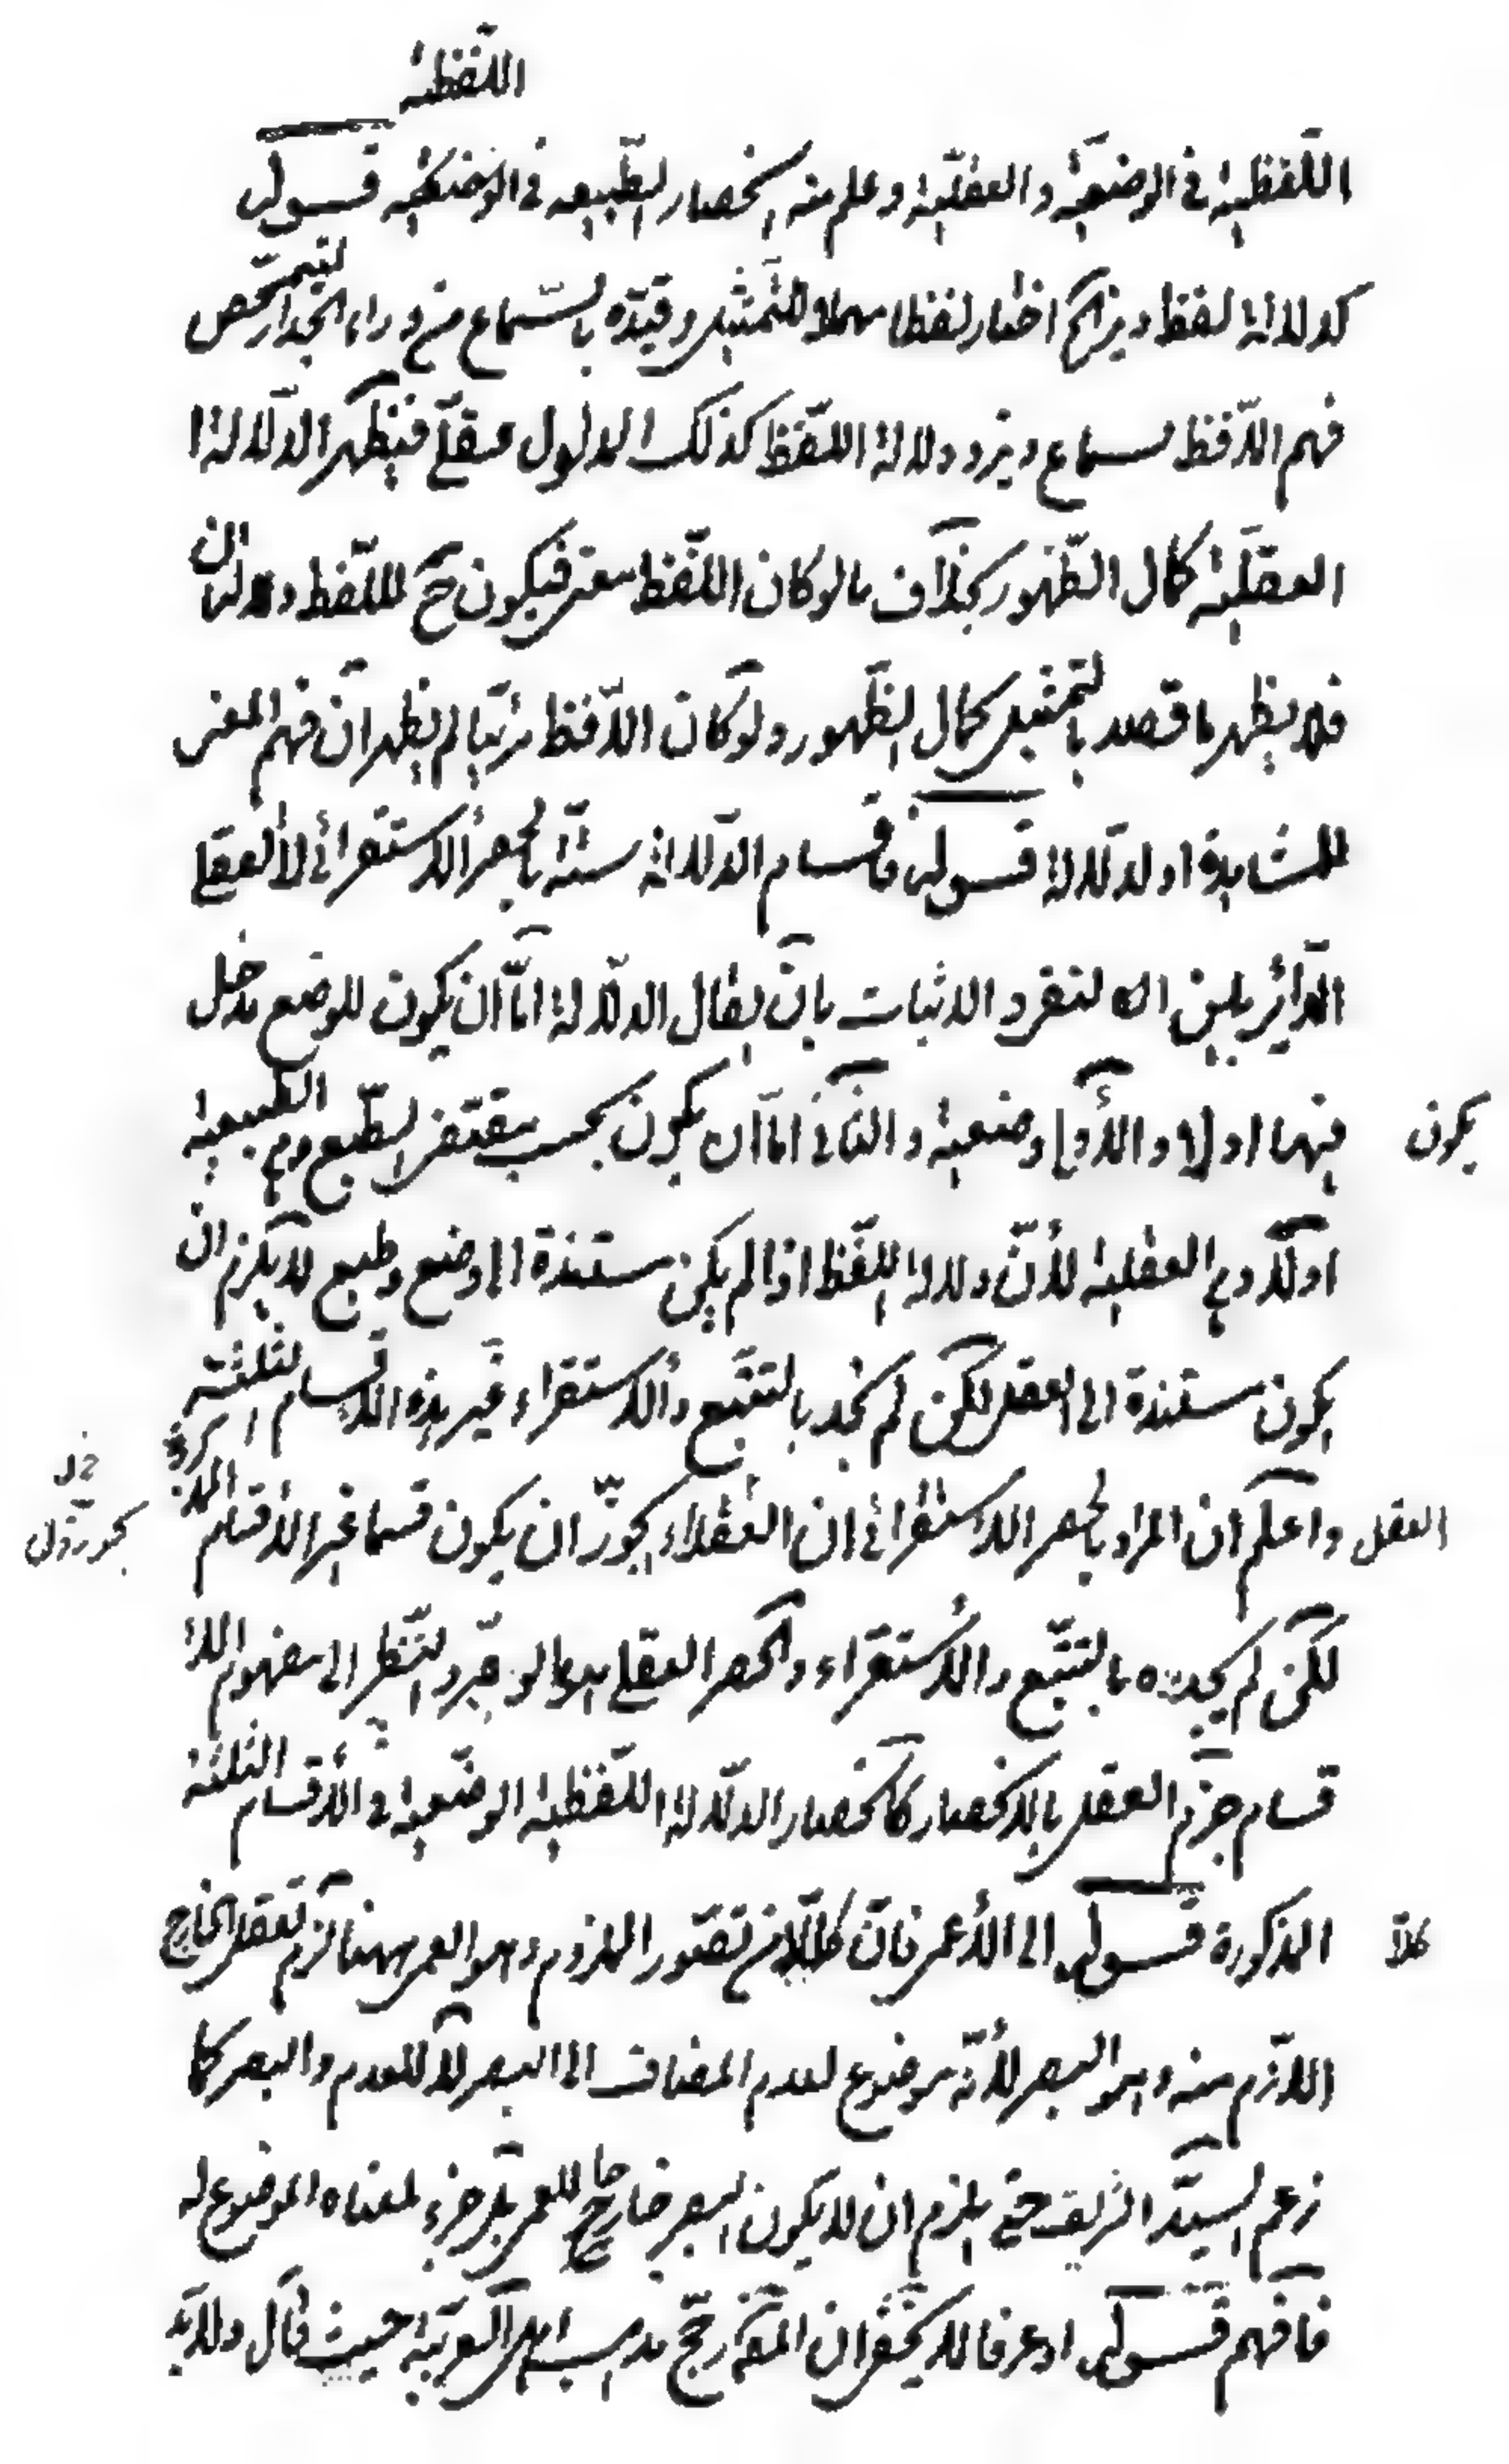 اللفظية
اللّفظية في الوضعيّة والعقليّة وعلم منه انحصار الطّبيعة في الوضعيّة قوله
كدلالة لفظ ديز الخ اختار لفظا مهملا للتّمثيل وقيّده بالسّماع من وراء الجدار ليتمحّص
فهم اللّافظ سماع ديز ودلالة اللّفظ كذلك المدلول عقلي فيظهر الدّلالة ا
العقليّة كمال الظّهور بخلاف ما لو كان اللّفظ فيكون ح للّفظ دلالتان
فلا يظهر ما قصد بالتّمثيل كمال الظّهور ولو كان اللّافظ مرئيّا لم يظهر ان فهم المعنى
للمشاهدة او للدّلالة قوله فاقسام الدّلالة ستّة بالحصر الاستقرائي لا العقلي
الدّائر بين النفي والاثبات بان يقال الدّلالة امّا ان يكون للوضع مدخل
يكون فيها او لا والأول وضعية والثاني امّا ان يكون بحسب مقتضى الطّبع وهي الطبيعية
او لا وهي العقلية لأنّ دلالة اللّفظ اذا لم يكن مستندة الى وضع وطبع لا يلزم ان
يكون مستندة الى العقل لكن لم نجد بالتتبّع والاستقراء غير هذه الاقسام الثلثة
العقل واعلم ان المراد بالحصر الاستقرائي ان العقلاء يجوّز ان يكون قسما غير الأقسام
لكن لم يجده بالتتبّع والاستقراء والحصر العقلي ما لو جرّد النّظر الى مفهوم الا
قسام جزم العقل بالانحصار كانحصار الدّلالة اللّفظية الوضعية في الأقسام الثلثة
المذكورة قوله الى الأعمى فانّ كلّا من تصوّر الملزوم وهو العمى ههنا لزم تعقل الخارج
اللازم منه وهو البصر لأنّه موضوع لعدم المضاف الى البصر لا للعدم والبصر كما
زعم السيّد الشريف حتى يلزم ان لا يكون البصر خارجا للعمى بل جزء لمعناه الموضوع له
فافهم قوله او عرفا لا يخفى ان المص رجّح مذهب اهل العربيّة حيث قال ولا بد